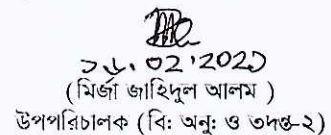 ১৮.০২.২০২১
(মির্জা জাহিদুল আলম )
উপপরিচালক (বি: অনু: ও তদন্ত-২)